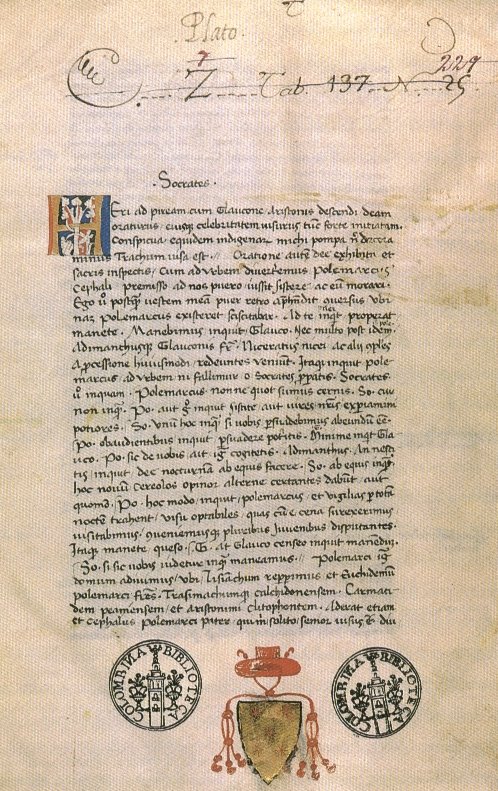 Plato.
Z Tab. 137. N. 25
229
.Socrates.
Heri ad pireeam cum Glaucone Aristonis descendi deam
oraturus eiusq̄ celebritatem uisurus tūc forte initiatam.
Conspicua equidem indigenarum michi pompa n̄ decora
minus Trachum uisa est. Oratione autē dee exhibita et
sacris inspectis cum ad urbem diuertemus Polemarcus
Cephali premisso ad nos puero iussit sistere ac eum morari.
Ego ū postq̄ uestem meā puer retro aphendit auersus ubi
nam Polemarcus existeret sciscitabar. Ad te inqt properat
manete. Manebimus inquit Glauco. Nec multo post idem
Adimanchusq̄ Glauconis fr̄. Niceratus nicei ac alii
a pcessione huiusmodi redeuntes ueniunt. Itaq inquit pole
marcus ad urbem ni fallimur o Socrates ppatis. Socrates
ū inquam. Polemarcus non ne quot simus cernis. So. cur
non inq. Po. aut g inquit sistite aut uires nr̄as expiamini
potiores. So. unū hoc inq si nobis psuadebimus abeundū eē.
Po. obaudientibus inquit psuadere potitis. Minime inqt Gla
uco. Po. sic de nobis aut ig cogitetis. Adimanthus. An nesci
tis inquit dee nocturna ab equis facere. So. ab equis inq
hoc nouū cereolos opinor alterne certantes dabunt aut
quomō. Po. hoc modo inquit polemarcus et uigilias p totā
noctē trahent uisu optabiles quas cū e cena surexerimus
uisitabimus, queniemusq̄ pluribus iuuenibus disputantes.
Itaq manete queso. G. at Glauco censeo inquit manendū.
So. si sic uobis uidetur inq maneamus. Polemarci ig
domum adiuimus ubi Lisiachum repperimus et Euthidemū
polemarci frēs. Trasimachumq calchidonensem. Carmati
dem peainensem et aristonimi clitophontem. Aderat etiam
et Cephalus Polemarci pater qui m solito senior uisus ē diu
BIBLIOTECA COLOMBINA
BIBLIOTECA COLOMBINA